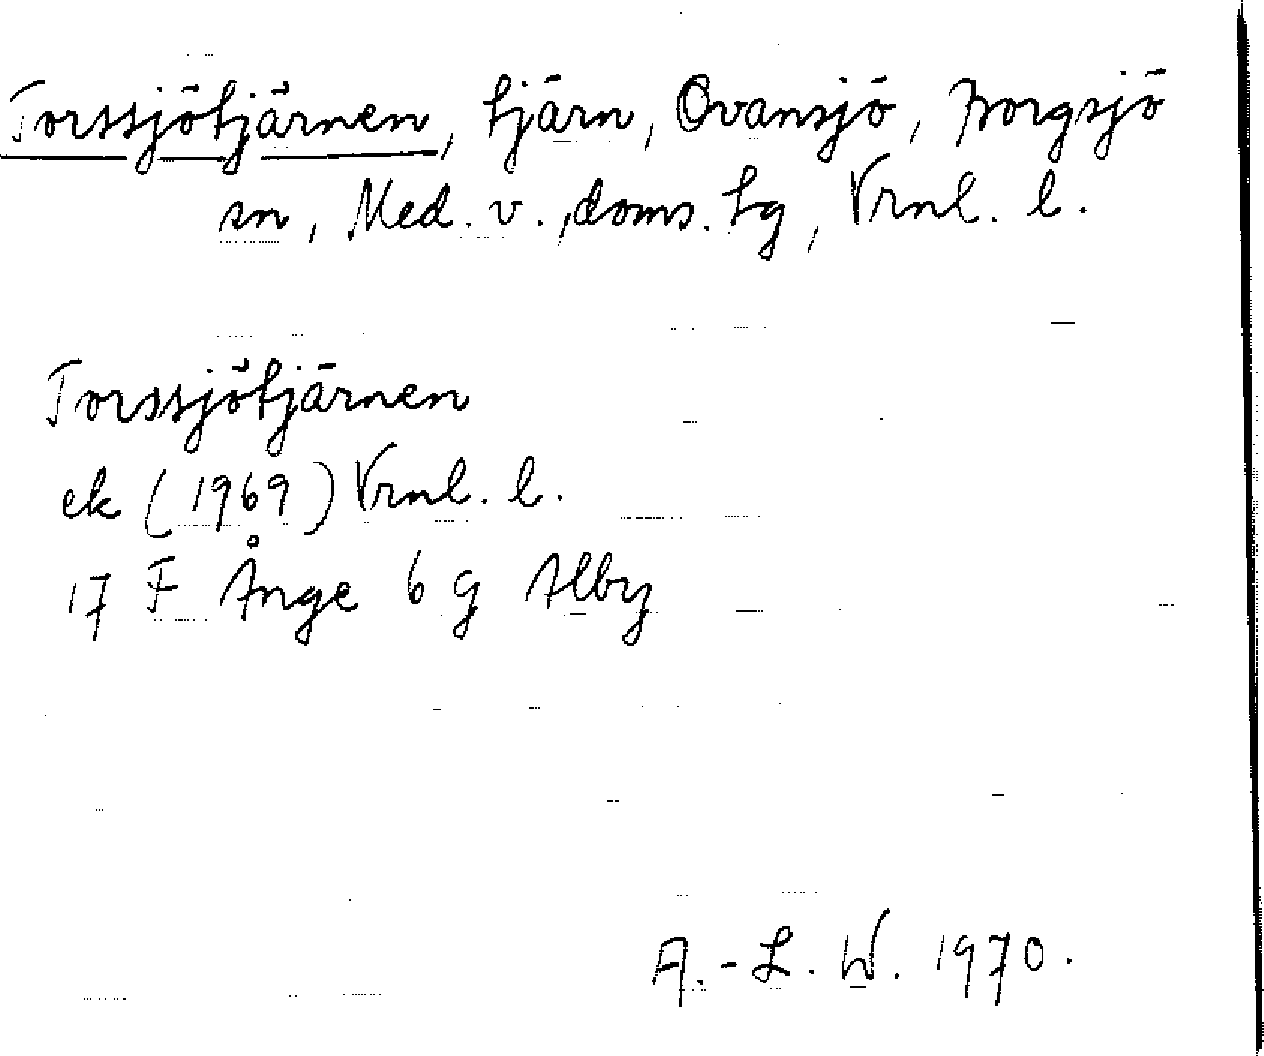 Torssjötjärnen, tjärn, Ovansjö, Borgsjö
sn, Med. v., doms. tg, Vrnl. l.
Torssjötjärnen
ek (1969) Vrnl. l.
17 F Ånge 6 g Alby
A.-L. W. 1970.